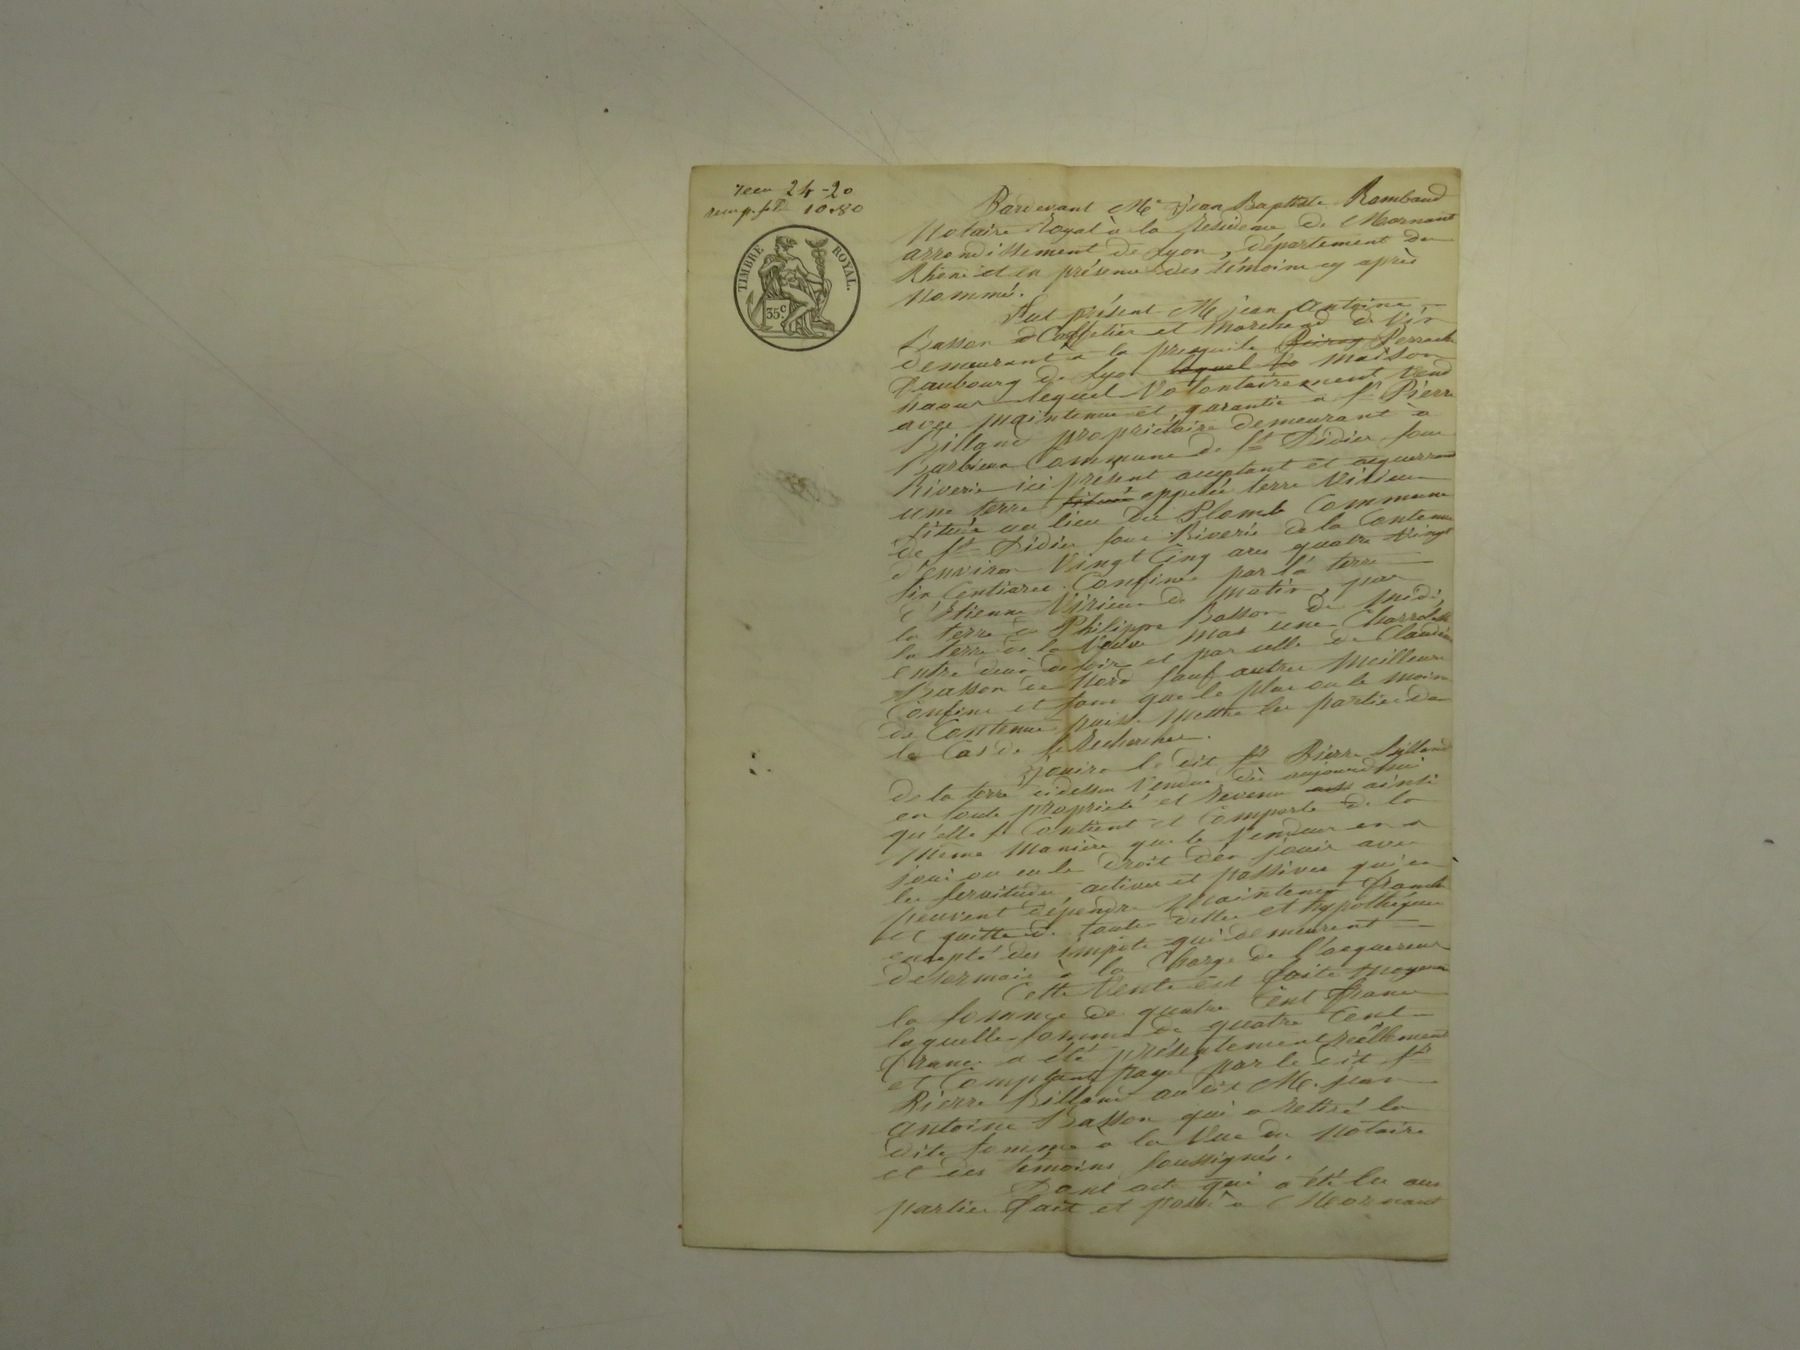 recu 24-20
10.80
TIMBRE ROYAL.
35c
Pardevant Me Jean Baptiste Rambaud
Notaire Royal à la Residence de Mornant
arrondissement de Lyon, département du
Rhône et en présence des témoins cy après
Nommé.
Fut présent M Jean Antoine
Basson Caffetier et Marchand de Vin
demeurant a la presquile Perrache
Faubourg de Lyon lequel maison
lequel Volontairement Vend
avec maintenue et garantie a Sr Pierre
Billand propriétaire demeurant à
Barbieux Commune de St Didier sous
Riverie ici présent acceptant et acquerrant
une terre située appelée terre Virieux
située au lieu du Plomb Commune
de St Didier sous Riverie de la Contenue
d'environ Vingt Cinq ares quatre Vingt
six Centiares. Confinée par la terre
d'Etienne Virieux de matin, par
la terre de Philippe Basson de midi,
la terre de la Veuve mas une Charrière
entre deux de soir et par celle de Claude
Basson de Nord sauf autres meilleurs
Confins et sans que le plus ou le moins
de Contenue puisse mettre les parties dans
le Cas de se Rechercher.
Jouira le dit Sr Pierre Billand
de la terre cidessus Vendue dès aujourd'hui
en toute propriété et Revenu ainsi
qu'elle se Contient et Comporte de la
même manière que le Vendeur en a
joui ou eu le droit d'en jouir avec
les servitudes actives et passives qui en
peuvent dépendre maintenue franche
et quitte de toutes dettes et hypothèques
excepté des impôts qui demeurent
désormais à la Charge de l'acquereur
Cette Vente est faite moyenant
la somme de quatre Cent francs
laquelle somme de quatre Cent
francs a été présentement réellement
et Comptant payé par le dit Sr
Pierre Billand au dit M. Jean
Antoine Basson qui a retiré la
dite somme a la Vue du Notaire
et des témoins soussignés.
Dont acte qui a été lu aux
parties fait et passé a Mornant